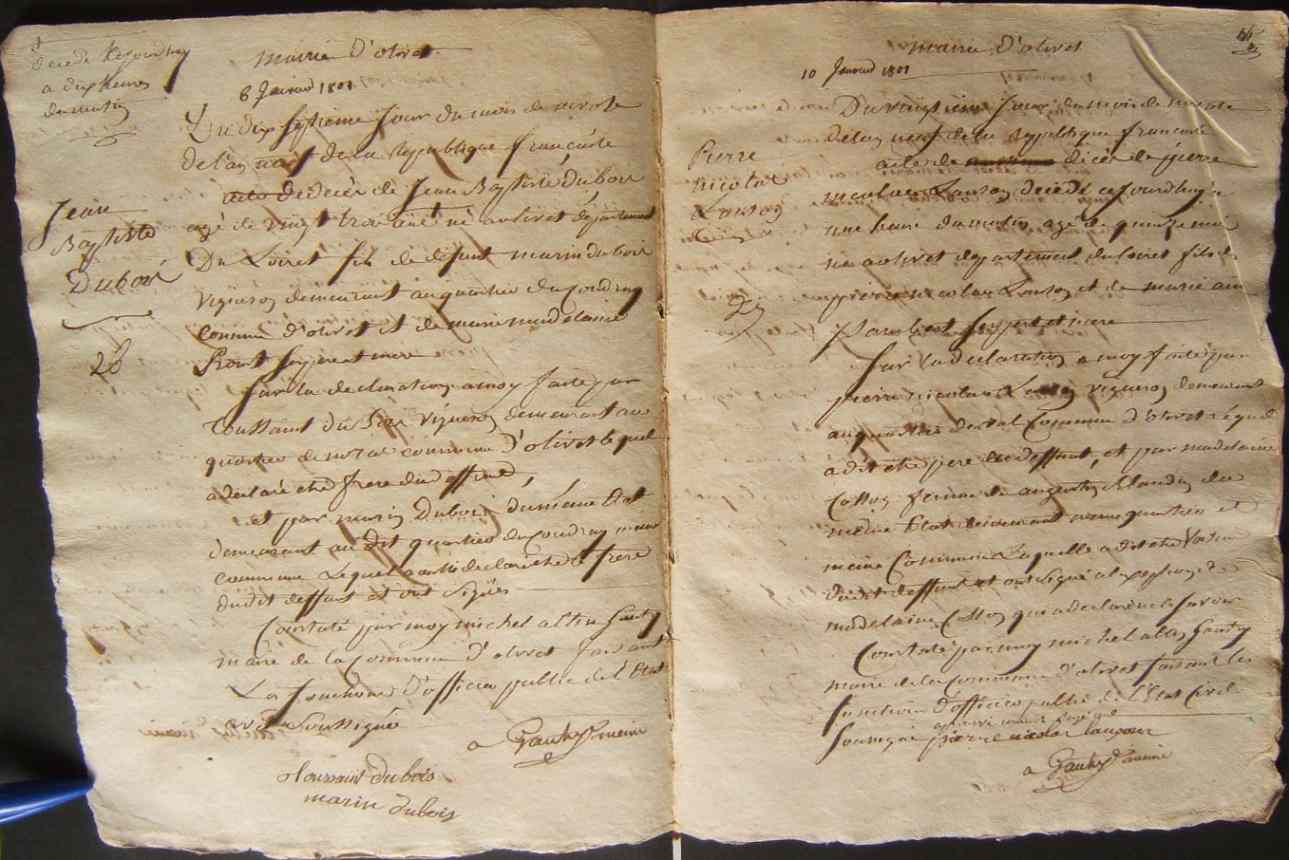 décédé cejourdhuy
a dix heures
du matin
mairie D'olivet
6 Janvier 1801
Du dix septieme Jour du mois de nivose
de l'an neuf de la Republique francaise
acte de decès de Jean Baptiste Dubois
agé de vingt trois né a olivet département
Du Loiret fils de defunt marin dubois
vigneron demeurant au quartier du Coudray
commune d'olivet et de marie madelaine
ses pere et mere
Jean
Baptiste
Dubois
28
Sur la declaration a moy faite par
Toussaint du Bois vigneron demeurant au
quartier de commune d'olivet le quel
a declaré etre frere du deffunt
et par marin Dubois du même Etat
demeurant au dit quartier du Coudray meme
commune Lequel a aussi déclaré etre frere
dudit deffunt et ont Signés
Constaté par moy michel a Gauthy
maire de la Commune d'olivet faisant
Les fonctions D'officier public de l'Etat
civil Soussigné
a Gauthy maire
toussaint dubois
marin dubois
mairie D'olivet
10 Janvier 1801
Du vingtieme Jour du mois de nivose
de l'an neuf de la Republique francaise
acte de decès de pierre
nicolas décédé cejourdhuy a
une heure du matin agé de quinze mois
né a olivet departement du loiret fils de
pierre nicolas et de marie anne
ses pere et mere
Pierre
nicolas
29
Sur la declaration a moy faite par
pierre nicolas vigneron demeurant
au quartier du val Commune d'olivet lequel
a dit etre pere du deffunt, et par madelaine
femme de augustin du
même Etat demeurant meme quartier et
meme Commune Laquelle a dit etre Voisine
dudit deffunt et ont Signé a l'exception de
madelaine qui a declaré ne le savoir
Constaté par moy michel a Gauthy
maire de la Commune d'olivet faisant les
fonctions D'officier public de l'Etat Civil
Soussigné pierre nicolas
a Gauthy maire